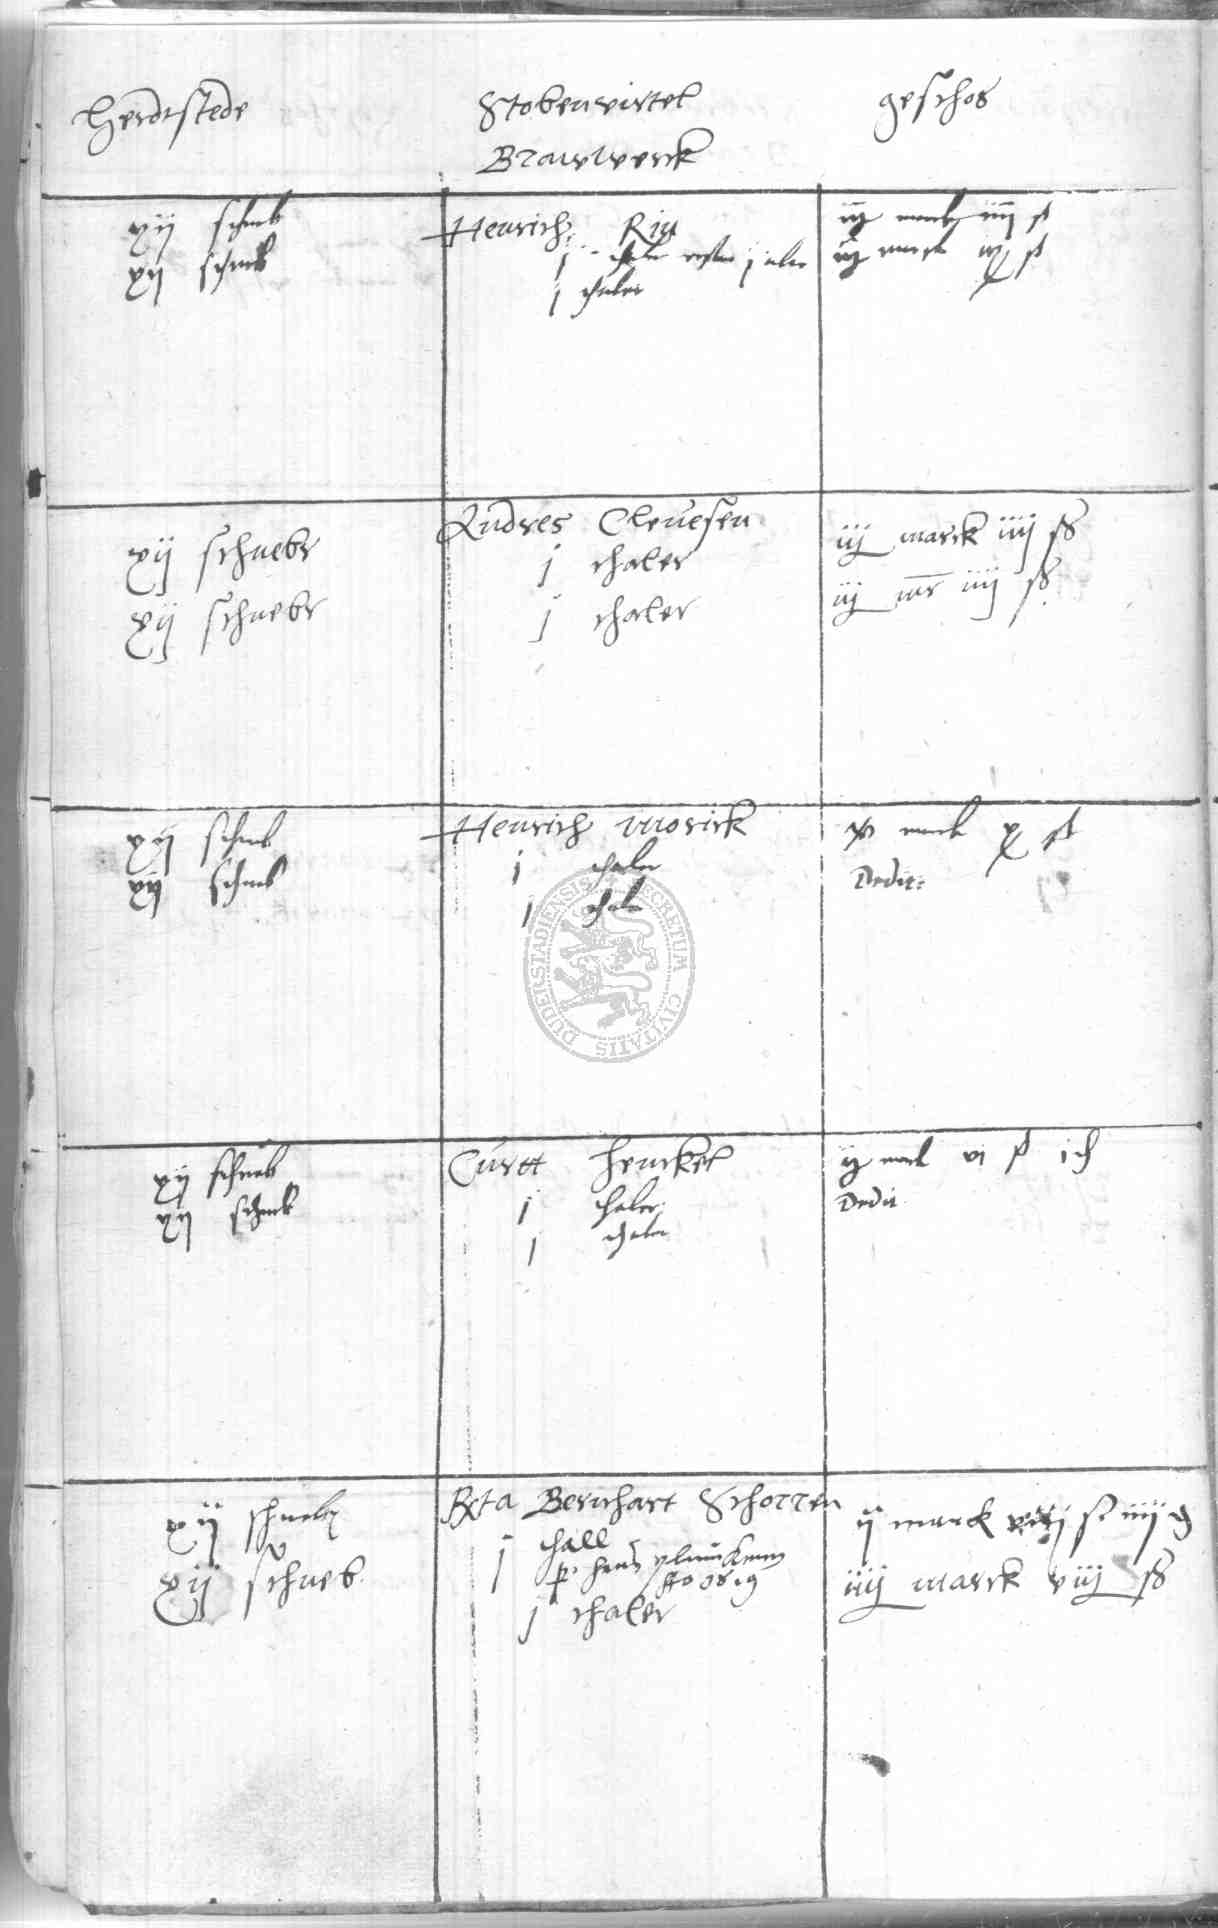 Herdtstede
Stobenvirtel
Brauwerck
geschos
xij schneb
xij schneb
Henrich Riɱ
j thaler
j thaler
iij marck iiij ß
iij marck ß
xij schnebr
xij schnebr
Andres Clevesen
j thaler
j thaler
iij marck iiij ß
iij mr iiij ß
xij schneb
xij schneb
Henrich Morick
j thaler
j thaler
marck x ß
Dedit
xij schneb
xij schneb
Curtt Henckel
j thaler
j thaler
ij marck vi ß i d
Dedit
xij schneb
xij schneb
Beta Bernhart Schorren
j thall
p. hans
j thaler
ij marck ß iiij d
iiij marck viij ß
SECRETUM CIVITATIS DUDERSTADIENSIS